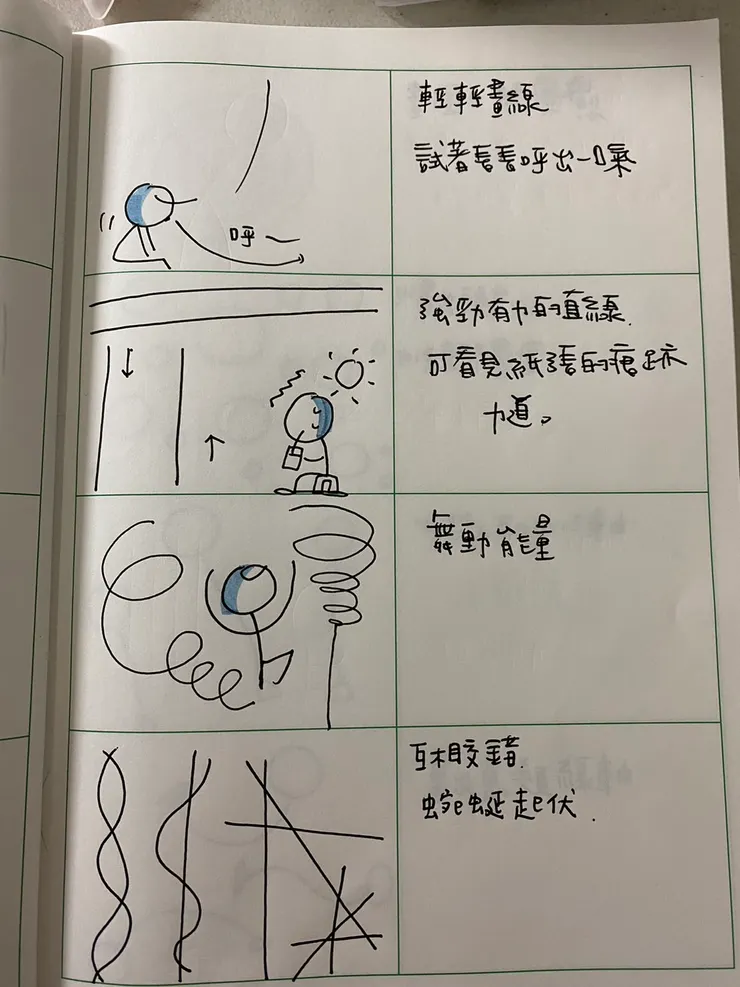 輕輕畫線
試著長長呼出一口氣
呼～
強勁有力的直線.
可看見紙張的痕跡
力道。
舞動能量
互相交錯.
蜿蜒起伏.